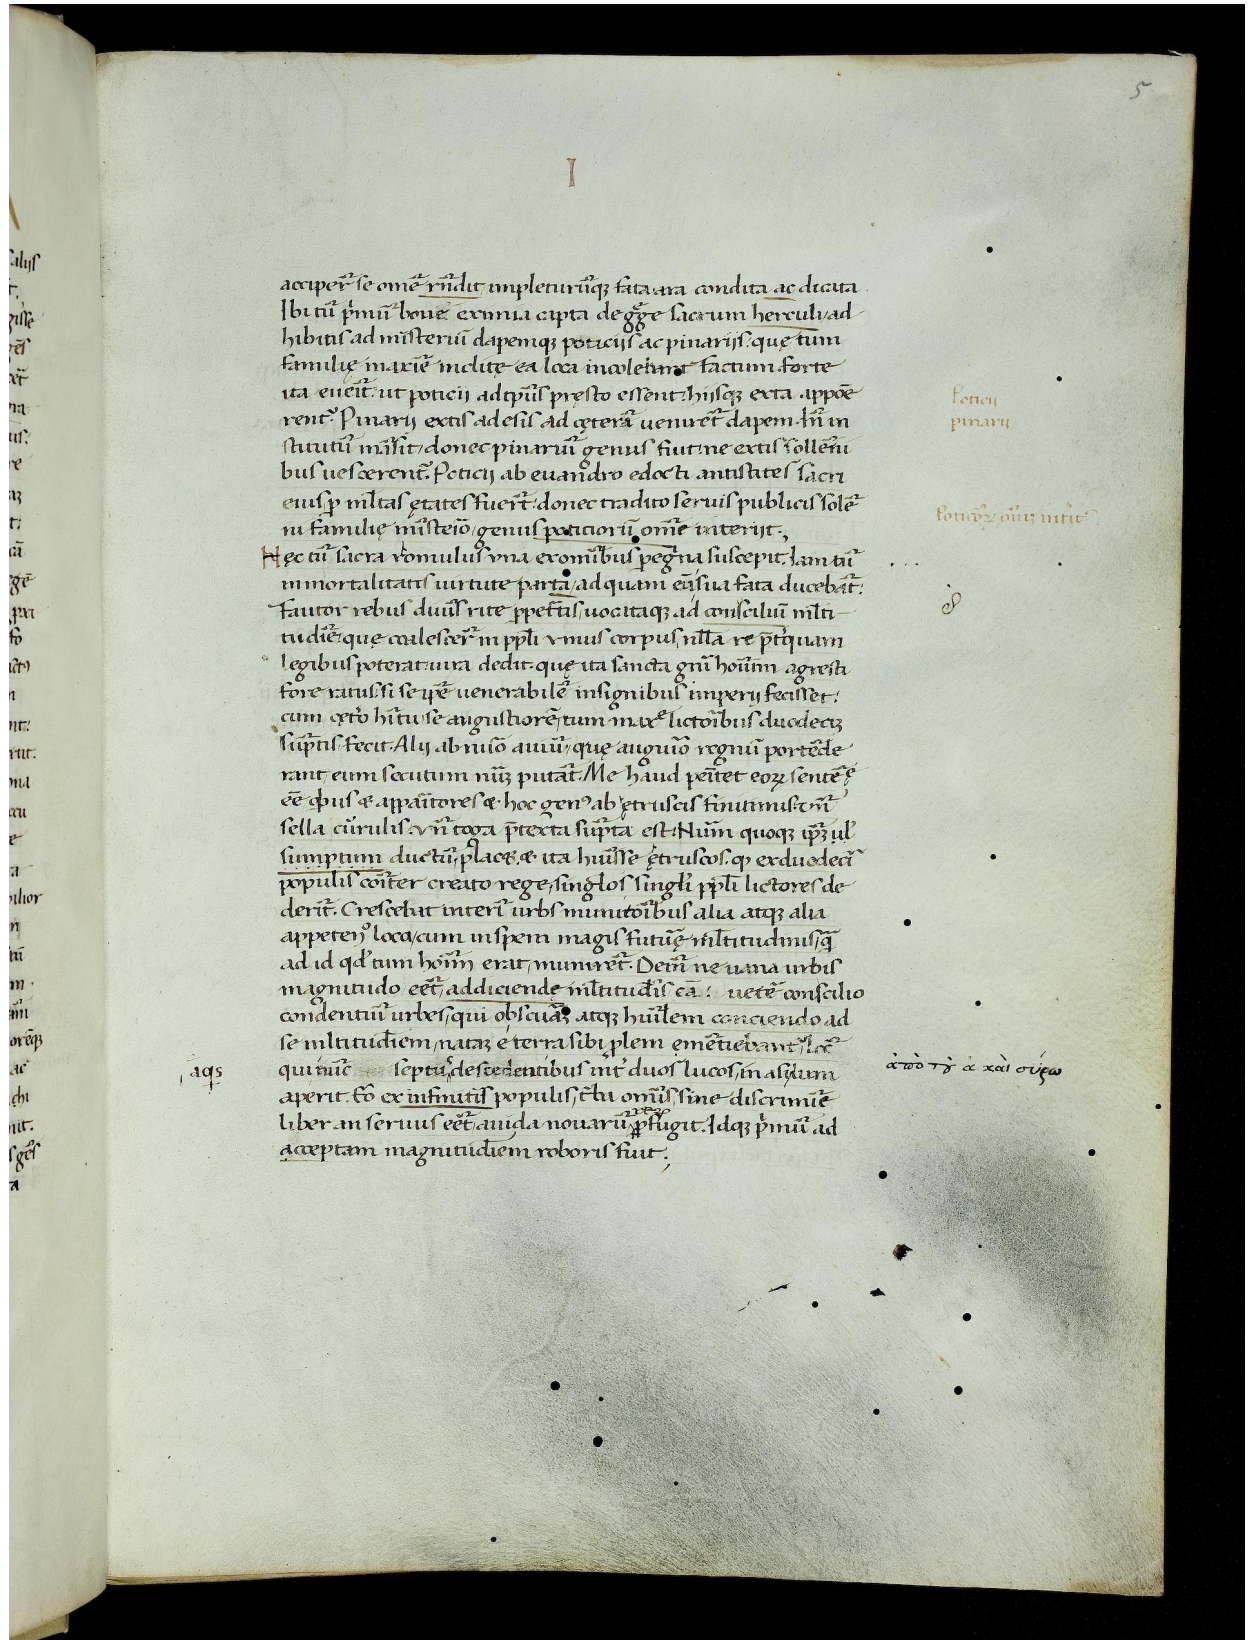 5
I
acciper̄ se omē rn̄dit impleturūq; fata ara condita ac dicata
Ibi tū p̄mū boue eximia capta de gͣge sacrum herculi ad
hibitis ad misteriū dapemq; poticijs ac pinarijs. quę tum
familię maxīe inclitę ea loca incolebant factum. forte
ita eueīt. ut poticij ad tp̄us pręsto essent. hijsq; exta appōe
rent̄. Pinarij extis adesis ad cęterā uenirēt dapem. In̄ in
stitutū māsit, donec pinariū genus fuit. ne extis solleīu
bus uescerent̄. Poticij ab euandro edocti antistites sacri
eius p̄ ml̄tas ętates fuer̄t. donec tradito seruis publicis solē
ni familię mīsteīo, genus poticiorū om̄e interijt.
Nec tū sacra romulus vna ex omībus pegͥna suscepit. Iam tū
inmortalitatis uirtute parta, ad quam eū sua fata ducebāt.
fautor rebus diuīs rite p̄pet̄tis, uocitaq; ad consciliū ml̄ti
tudīe, quę coalescer̄ in pp̄li vnius corpus, nll̄a re p̄tq̇uam
legibus poterat. iura dedit. quę ita sancta gn̄i hom̄im agresti
fore ratus. si se ip̄e uenerabilē insignibus imperij fecisset.
cum cęt̄o hītu se augustiorē, tum maxͤ lictoībus duodeciz
sūptis fecit. Alij ab nūo auiū, quę auguīo regnū portēde
rant, eum secutum nūz putāt. Me haud peīt̄et eoꝝ sentēę
eē qͥbus & appaītores & hoc genꝰ ab ętruscis finitimis. vn̄
sella cūrulis. vn̄ toga p̄texta sūpta est. Nūm quoq; ip̄z ul̄
sumptum ductū placet, & ita hūisse ętruscos. qͩ ex duodecī
populis coīter creato rege, singlos singl̄i pp̄li lictores de
derīt. Crescebat interī urbs munitoībus alia atq; alia
appetenꝰ loca, cum in spem magis futurę ml̄titudinis, qͣ
ad id qd̄ tum hoīm erat, munirēt. Dein̄ ne uana urbis
magnitudo eēt, addiciendę ml̄titud̄is cā: uetē conscilio
condentiū urbes, qui obscuāz atq; hūilem conciendo ad
se ml̄titud̄iem, nataz e terra sibi plem ementiebant̄, locū
qui nūc septū descedentibus int̄ duos lucos, in asylum
aperit. Eo ex infinitis populis, t̄ba om̄is, sine discrimīe
liber an seruus eēt, auida nouarū p̄fugit. Idq; p̄mū ad
acceptam magnitud̄iem roboris fuit.
Poticij
pinarij
aqs
ἀπὸ τοῦ ἀ καὶ σύρω